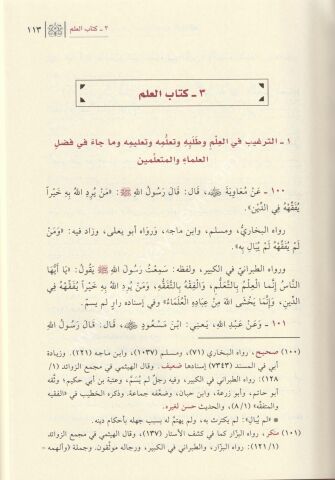 ٣ ـ كتاب العلم ١١٣
٣ ـ كتاب العلم
١ ـ الترغيب في العِلْم وطَلَبِه وتعلُّمِه وتعليمِه وما جاءَ في فضلِ
العلماءِ والمتعلِّمين
١٠٠ ـ عَنْ مُعَاوِيَةَ ﷺ، قَالَ: قَالَ رَسُولُ اللهِ ﷺ: «مَنْ يُرِدِ اللهُ بِهِ خَيْراً
يُفَقِّهْهُ فِي الدِّيْنِ».
رواه البخاريُّ، ومسلم، وابن ماجه، وَرَواه أبو يعلى، وزاد فيه: «وَمَنْ
لَمْ يُفَقِّهْهُ لَمْ يُبَالِ بِهِ».
ورواه الطبرانيُّ في الكبير، ولفظه: سَمِعْتُ رَسُولَ اللهِ ﷺ يَقُولُ: «يَا أَيُّهَا
النَّاسُ! إِنَّمَا العِلْمُ بِالتَّعَلُّمِ، وَالفِقْهُ بِالتَّفَقُّهِ، وَمَنْ يُرِدِ اللهُ بِهِ خَيْراً يُفَقِّهْهُ فِي
الدِّينِ، وَإِنَّمَا يَخْشَى اللهَ مِنْ عِبَادِهِ العُلَمَاءُ» وفي إسناده راوٍ لم يسمّ.
١٠١ ـ وَعَنْ عَبْدِ اللهِ، يَعني: ابْنَ مَسْعُودٍ، قَالَ: قَالَ رَسُولُ اللهِ
(١٠٠) صحيح، رواه البخاري (٧١)، ومسلم (١٠٣٧)، وابن ماجه (٢٢١). وزيادة
أبي في المسند (٧٣٤٣) إسنادها ضعيف. وقال الهيثمي في مجمع الزوائد (١/
١٢٨): رواه الطبراني في الكبير، وفيه رجل لمْ يُسَمَّ، وعتبة بن أبي حكيم؛ وثَّقه
أبو حاتم، وأبو زرعة، وابن حبان، وضعَّفه جماعة. وذكره الخطيب في «الفقيه
والمتفقه» (٨/١)، والحديث حسن لغيره.
• «لم يُبالِ»: لم يكترث به، ولم يهتمّ له بسبب جهله بأحكام دينه.
(١٠١) منكر، رواه البزّار كما في كشف الأستار (١٣٧)، وقال الهيثمي في مجمع الزوائد
(١٢١/١): رواه البزّار، والطبراني في الكبير، ورجاله موثَّقون. وجملة («وألهمه ـ